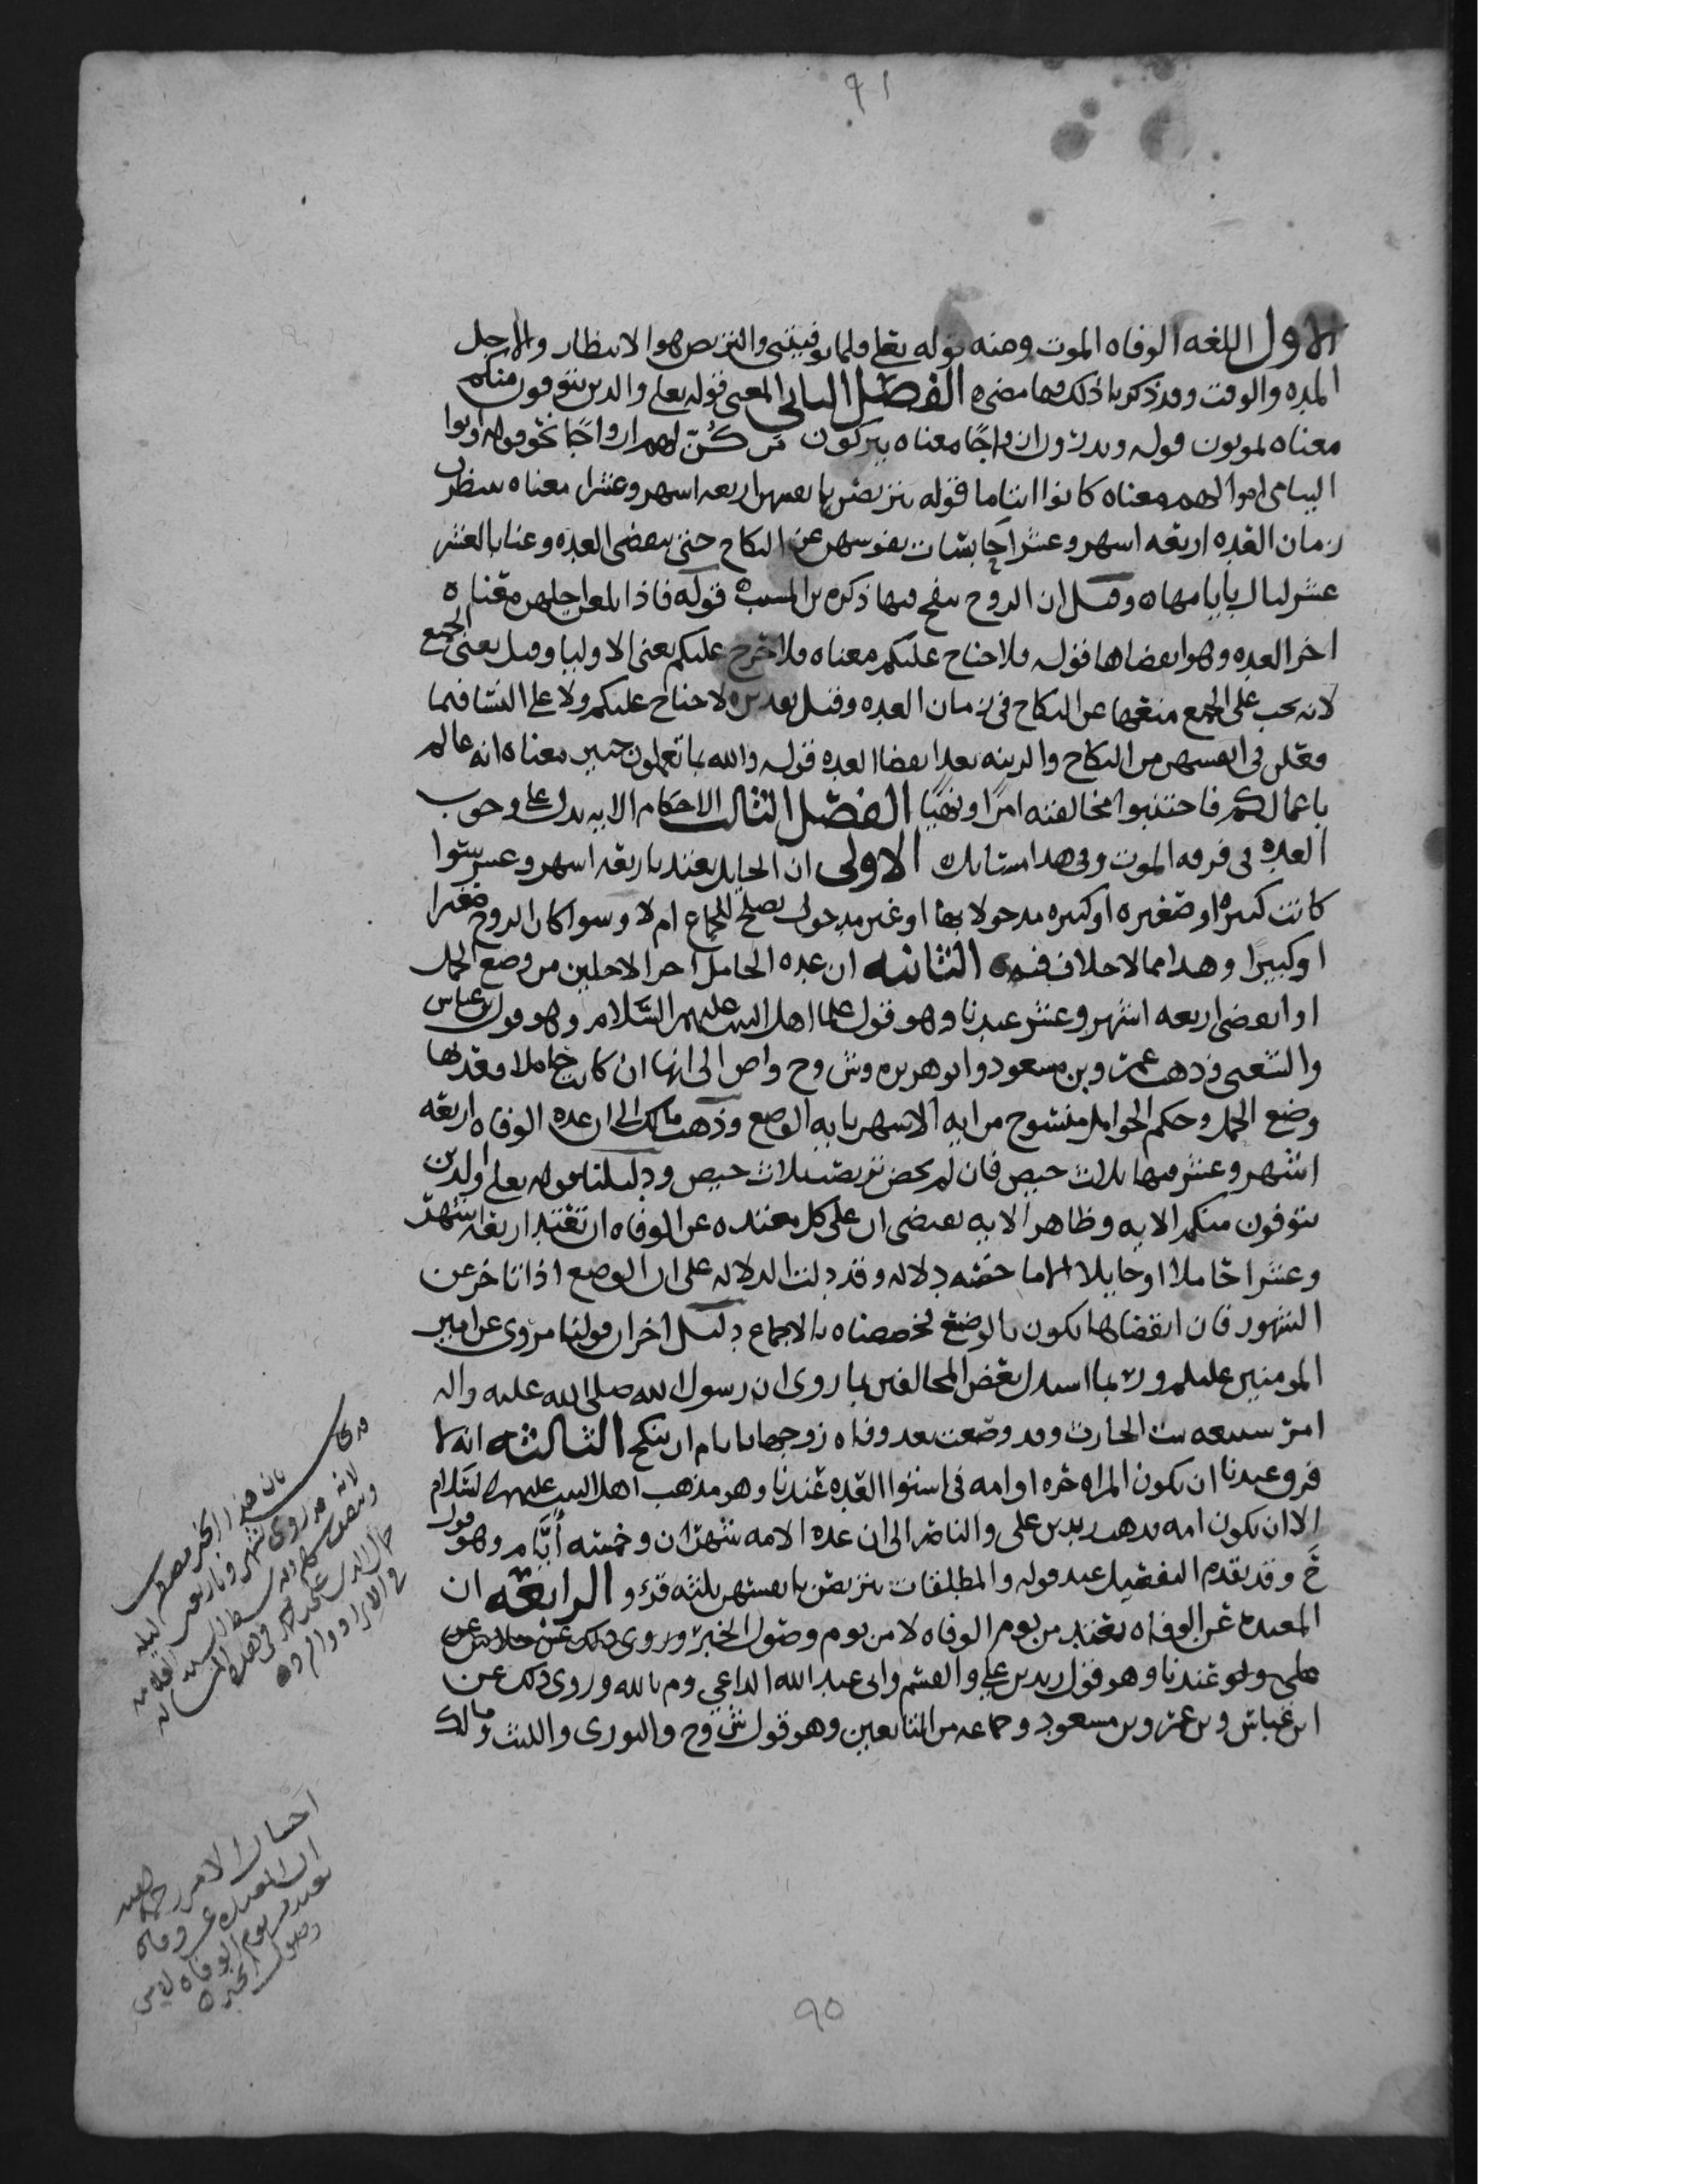 ٩١
الاول اللغه الوفاه الموت ومنه قوله تعلى فلما توفيتني والتربص هو الانتظار والاجل
المده والوقت وقد ذكرنا ذلك فيما مضى ه الفصل الثاني المعنى قوله تعلى والذين يتوفون منكم
معناه يموتون قوله ويذرون ازواجًا معناه يتركون من كُنّ لهم ازواجًا نحو قوله واتوا
اليتامى اموالهم معناه كانوا ايتاما قوله يتربصن بانفسهن اربعه اشهر وعشرا معناه ينتظرن
زمان العده اربعه اشهر وعشرا حابسات نفوسهن عن النكاح حتى تنقضي العده وعنا بالعشر
عشر ليال بايامها ه وقيل ان الروح ينفخ فيها ذكره بن المسيب ه قوله فاذا بلغن اجلهن معناه
اخر العده وهو انقضاها قوله فلا جناح عليكم معناه فلا حرج عليكم يعني الاوليا وقيل يعني الجميع
لانه يجب على الجميع منعها عن النكاح في زمان العده وقيل تقديره لا جناح عليكم ولا على النسا فيما
فعلن في انفسهن من النكاح والزينه بعد انقضا العده قوله والله بما تعملون خبير معناه انه عالم
باعمالكم فاجتنبوا مخالفته امرًا ونهيًا الفصل الثالث الاحكام الايه تدل على وجوب
العده في فرقه الموت وفي هذا مسايل ه الاولى ان الحايل تعتد باربعه اشهر وعشر سوا
كانت كبيره او صغيره او كبيره مدخولا بها او غير مدخول تصلح للجماع ام لا وسوا كان الزوج صغيرا
او كبيرًا وهذا مما لا خلاف فيه ه الثانيه ان عده الحامل اخر الاجلين من وضع الحمل
او انقضى اربعه اشهر وعشر عندنا وهو قول علما اهل البيت عليهم السلام وهو قول بن عباس
والشعبي وذهب عمر وبن مسعود وابو هريره وش وح واص الى انها ان كانت حاملا فعدتها
وضع الحمل وحكم الحوامل منسوخ من ايه الاشهر بايه الوضع وذهب مالك الى ان عده الوفاه اربعه
اشهر وعشر فيها ثلاث حيض فان لم تحض تربصت ثلاث حيض ودليلنا قوله تعلى والذين
يتوفون منكم الايه وظاهر الايه يقتضي ان على كل معتده عن الوفاه ان تعتد اربعه اشهر
وعشرا حاملا او حايلا الا ما خصته دلاله وقد دلت الدلاله على ان الوضع اذا تاخر عن
الشهور فان انقضاها يكون بالوضع فخصصناه بالاجماع دليل اخر ان قولنا مروي عن امير
المومنين عليلم وربما استدل بعض المخالفين بما روي ان رسول الله صلى الله عليه واله
امر سبيعه بنت الحارث وقد وضعت بعد وفاه زوجها بايام ان تنكح الثالثه انه لا
فرق عندنا ان تكون المراه حره او امه في استوا العده عندنا وهو مذهب اهل البيت عليهم السلام
الا ان تكون امه فذهب زيد بن علي والناصر الى ان عده الامه شهران وخمسه أيَّام وهو قول
حَ وقد تقدم التفصيل عند قوله والمطلقات يتربصن بانفسهن ثلثه قروء الرابعه ان
المعتده عن الوفاه تعتد من يوم الوفاه لا من يوم وصول الخبر وروي ذلك عن
علي ولو عندنا وهو قول زيد بن علي والقسم وابي عبد الله الداعي وم بالله وروي ذلك عن
ابن عباس وبن عمر وبن مسعود وجماعه من التابعين وهو قول ش وح والثوري والليث ومالك
اختيار الامير رحمه
ان المعتده عن وفاه
تعتد من يوم الوفاه لا من
وصول الخبر ه
٩٥